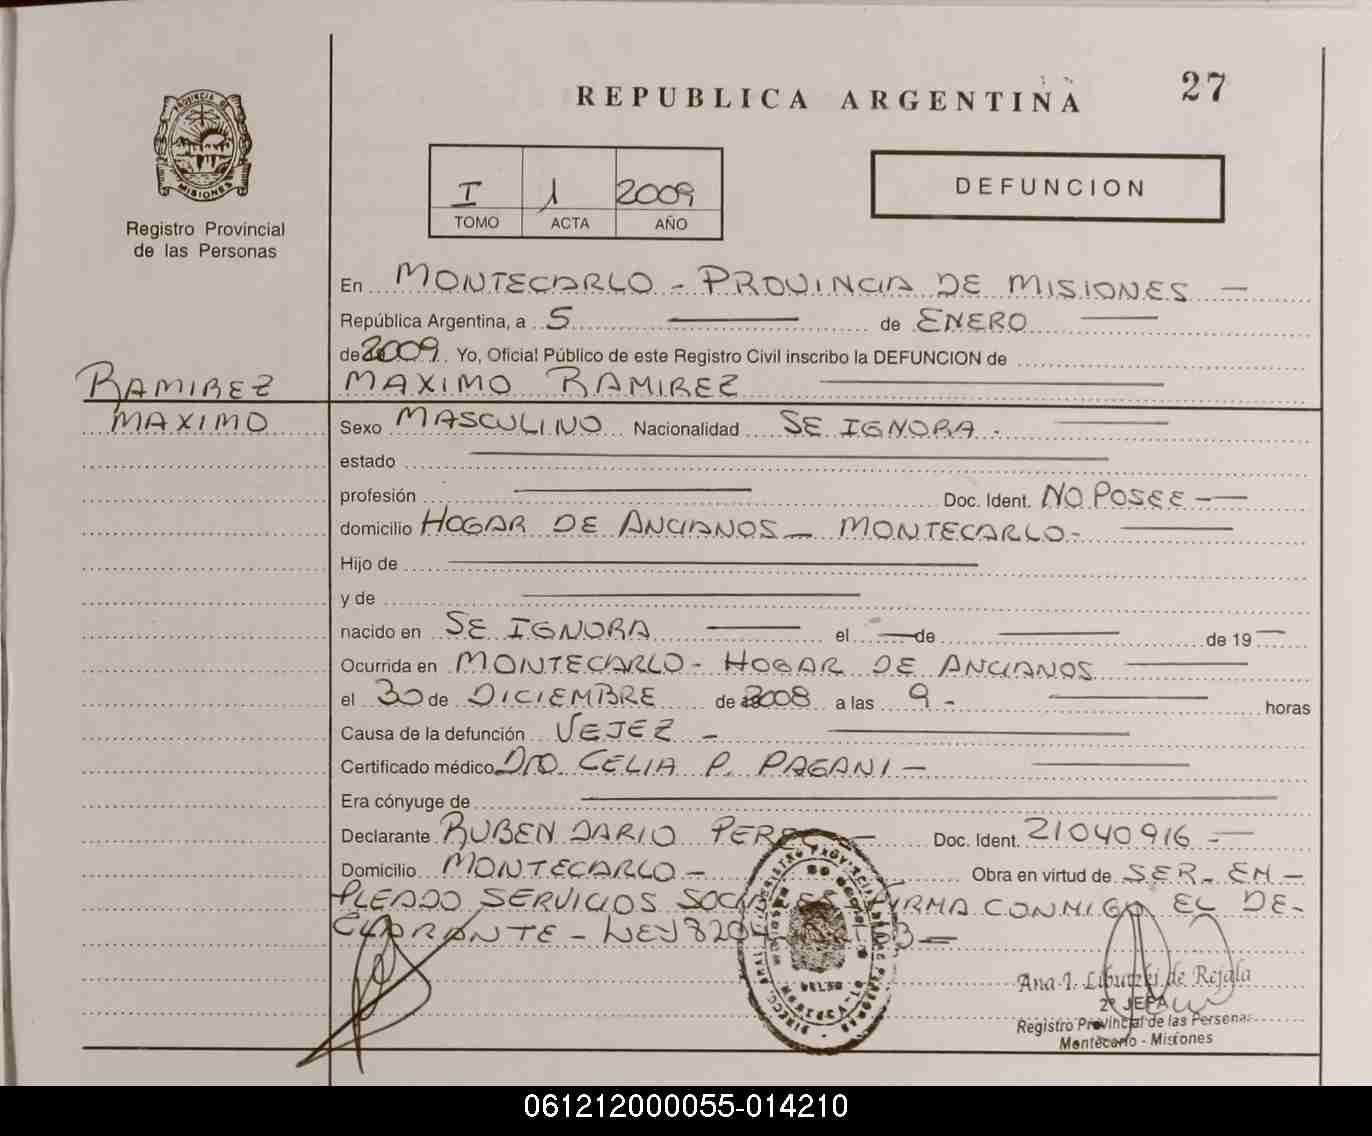 PROVINCIA DE
MISIONES
Registro Provincial
de las Personas
REPUBLICA ARGENTINA
27
I 1 2009
TOMO ACTA AÑO
DEFUNCION
En MONTECARLO - PROVINCIA DE MISIONES -
República Argentina, a 5 de ENERO
de 2009. Yo, Oficial Público de este Registro Civil inscribo la DEFUNCION de
RAMIREZ
MAXIMO
MAXIMO RAMIREZ
Sexo MASCULINO Nacionalidad SE IGNORA.
estado
profesión Doc. Ident. NO POSEE -
domicilio HOGAR DE ANCIANOS - MONTECARLO -
Hijo de
y de
nacido en SE IGNORA el de de 19
Ocurrida en MONTECARLO - HOGAR DE ANCIANOS
el 30 de DICIEMBRE de 2008 a las 9 - horas
Causa de la defunción VEJEZ -
Certificado médico CELIA P. PAGANI -
Era cónyuge de
Declarante RUBEN DARIO Doc. Ident. 21040916 -
Domicilio MONTECARLO - Obra en virtud de SER - EM -
PLEADO SERVICIOS FIRMA CONMIGO EL DE-
CLARANTE - LEY 8204
Ana I. de Rejala
2º JEFA
Registro Provincial de las Personas
Montecarlo - Misiones
061212000055-014210